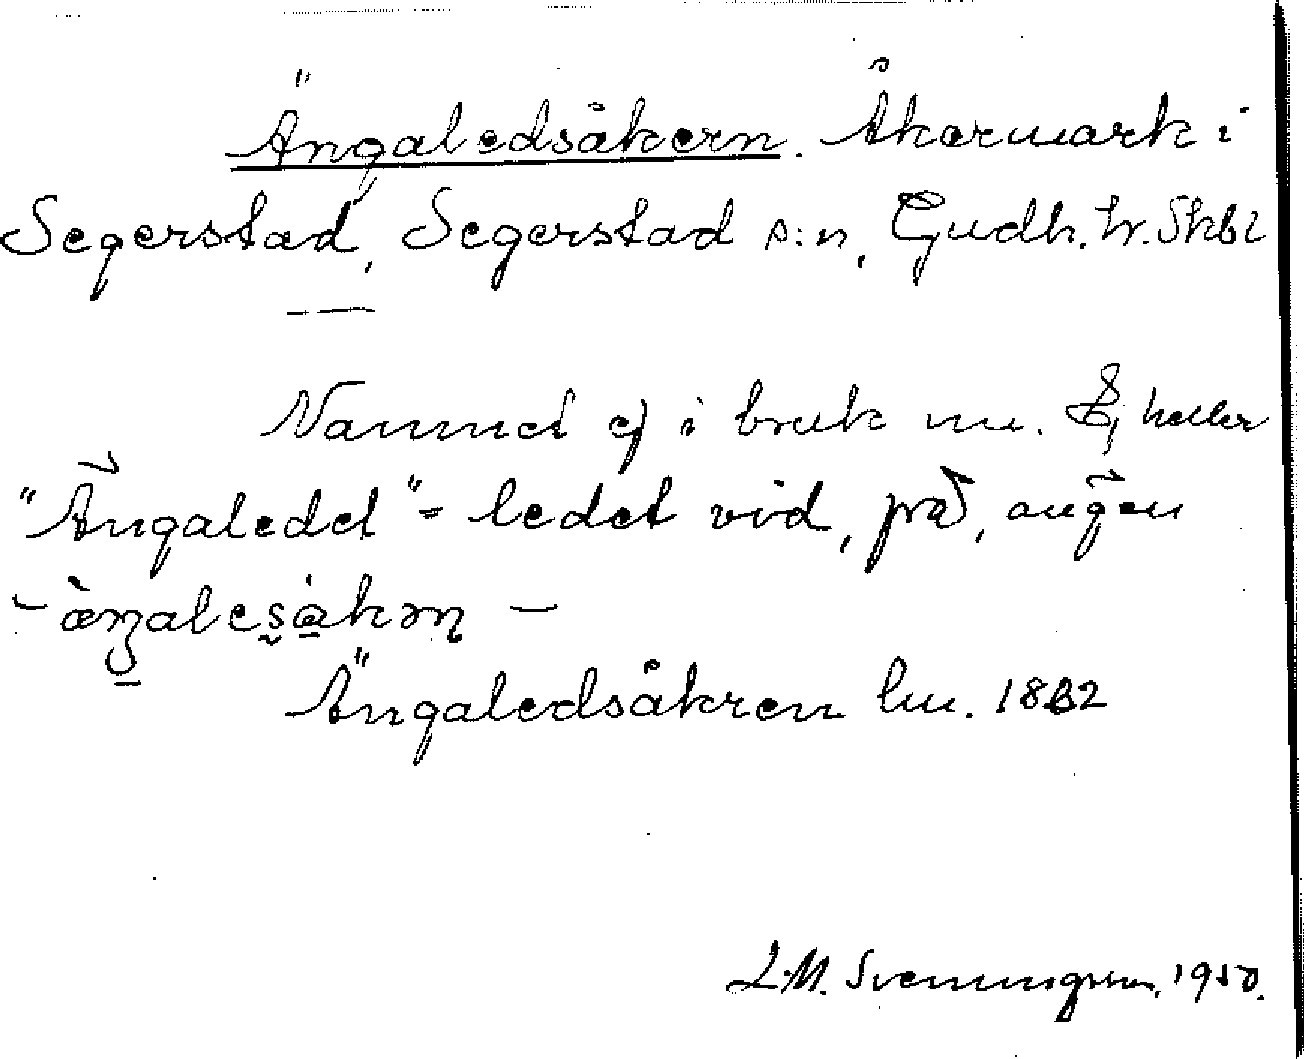 Ängaledsåkern. Åkermark i
Segerstad, Segerstad s:n, Gudh. hr. Skbl
Namnet ej i bruk nu. Ej heller
"Ängaledet" = ledet vid, på, ängen
- ängales̬åkəṇ -
Ängaledsåkren lm. 1882
L.M. Svenungsson, 1950.